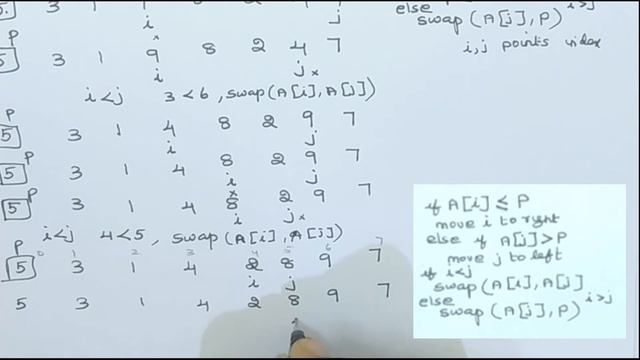 5. 3 1
i j
else
swap(A[j],P) i>j
i,j points index
P
5 3 1 9 8 2 4 7
i j x
i<j 3<6, swap(A[i],A[j])
P
5 3 1 4 8 2 9 7
j
P
5 3 1 4 8 2 9 7
i j
x
P
5 3 1 4 8 2 9 7
i j x
i<j 4<5, swap(A[i],A[j])
P
0 1 2 3 4 5 6 7
5 3 1 4 2 8 9 7
i j
5 3 1 4 2 8 9 7
if A[i] ≤ P
move i to right
else if A[j]>P
move j to left
if i<j
swap(A[i],A[j]
else
swap(A[j],P) i>j